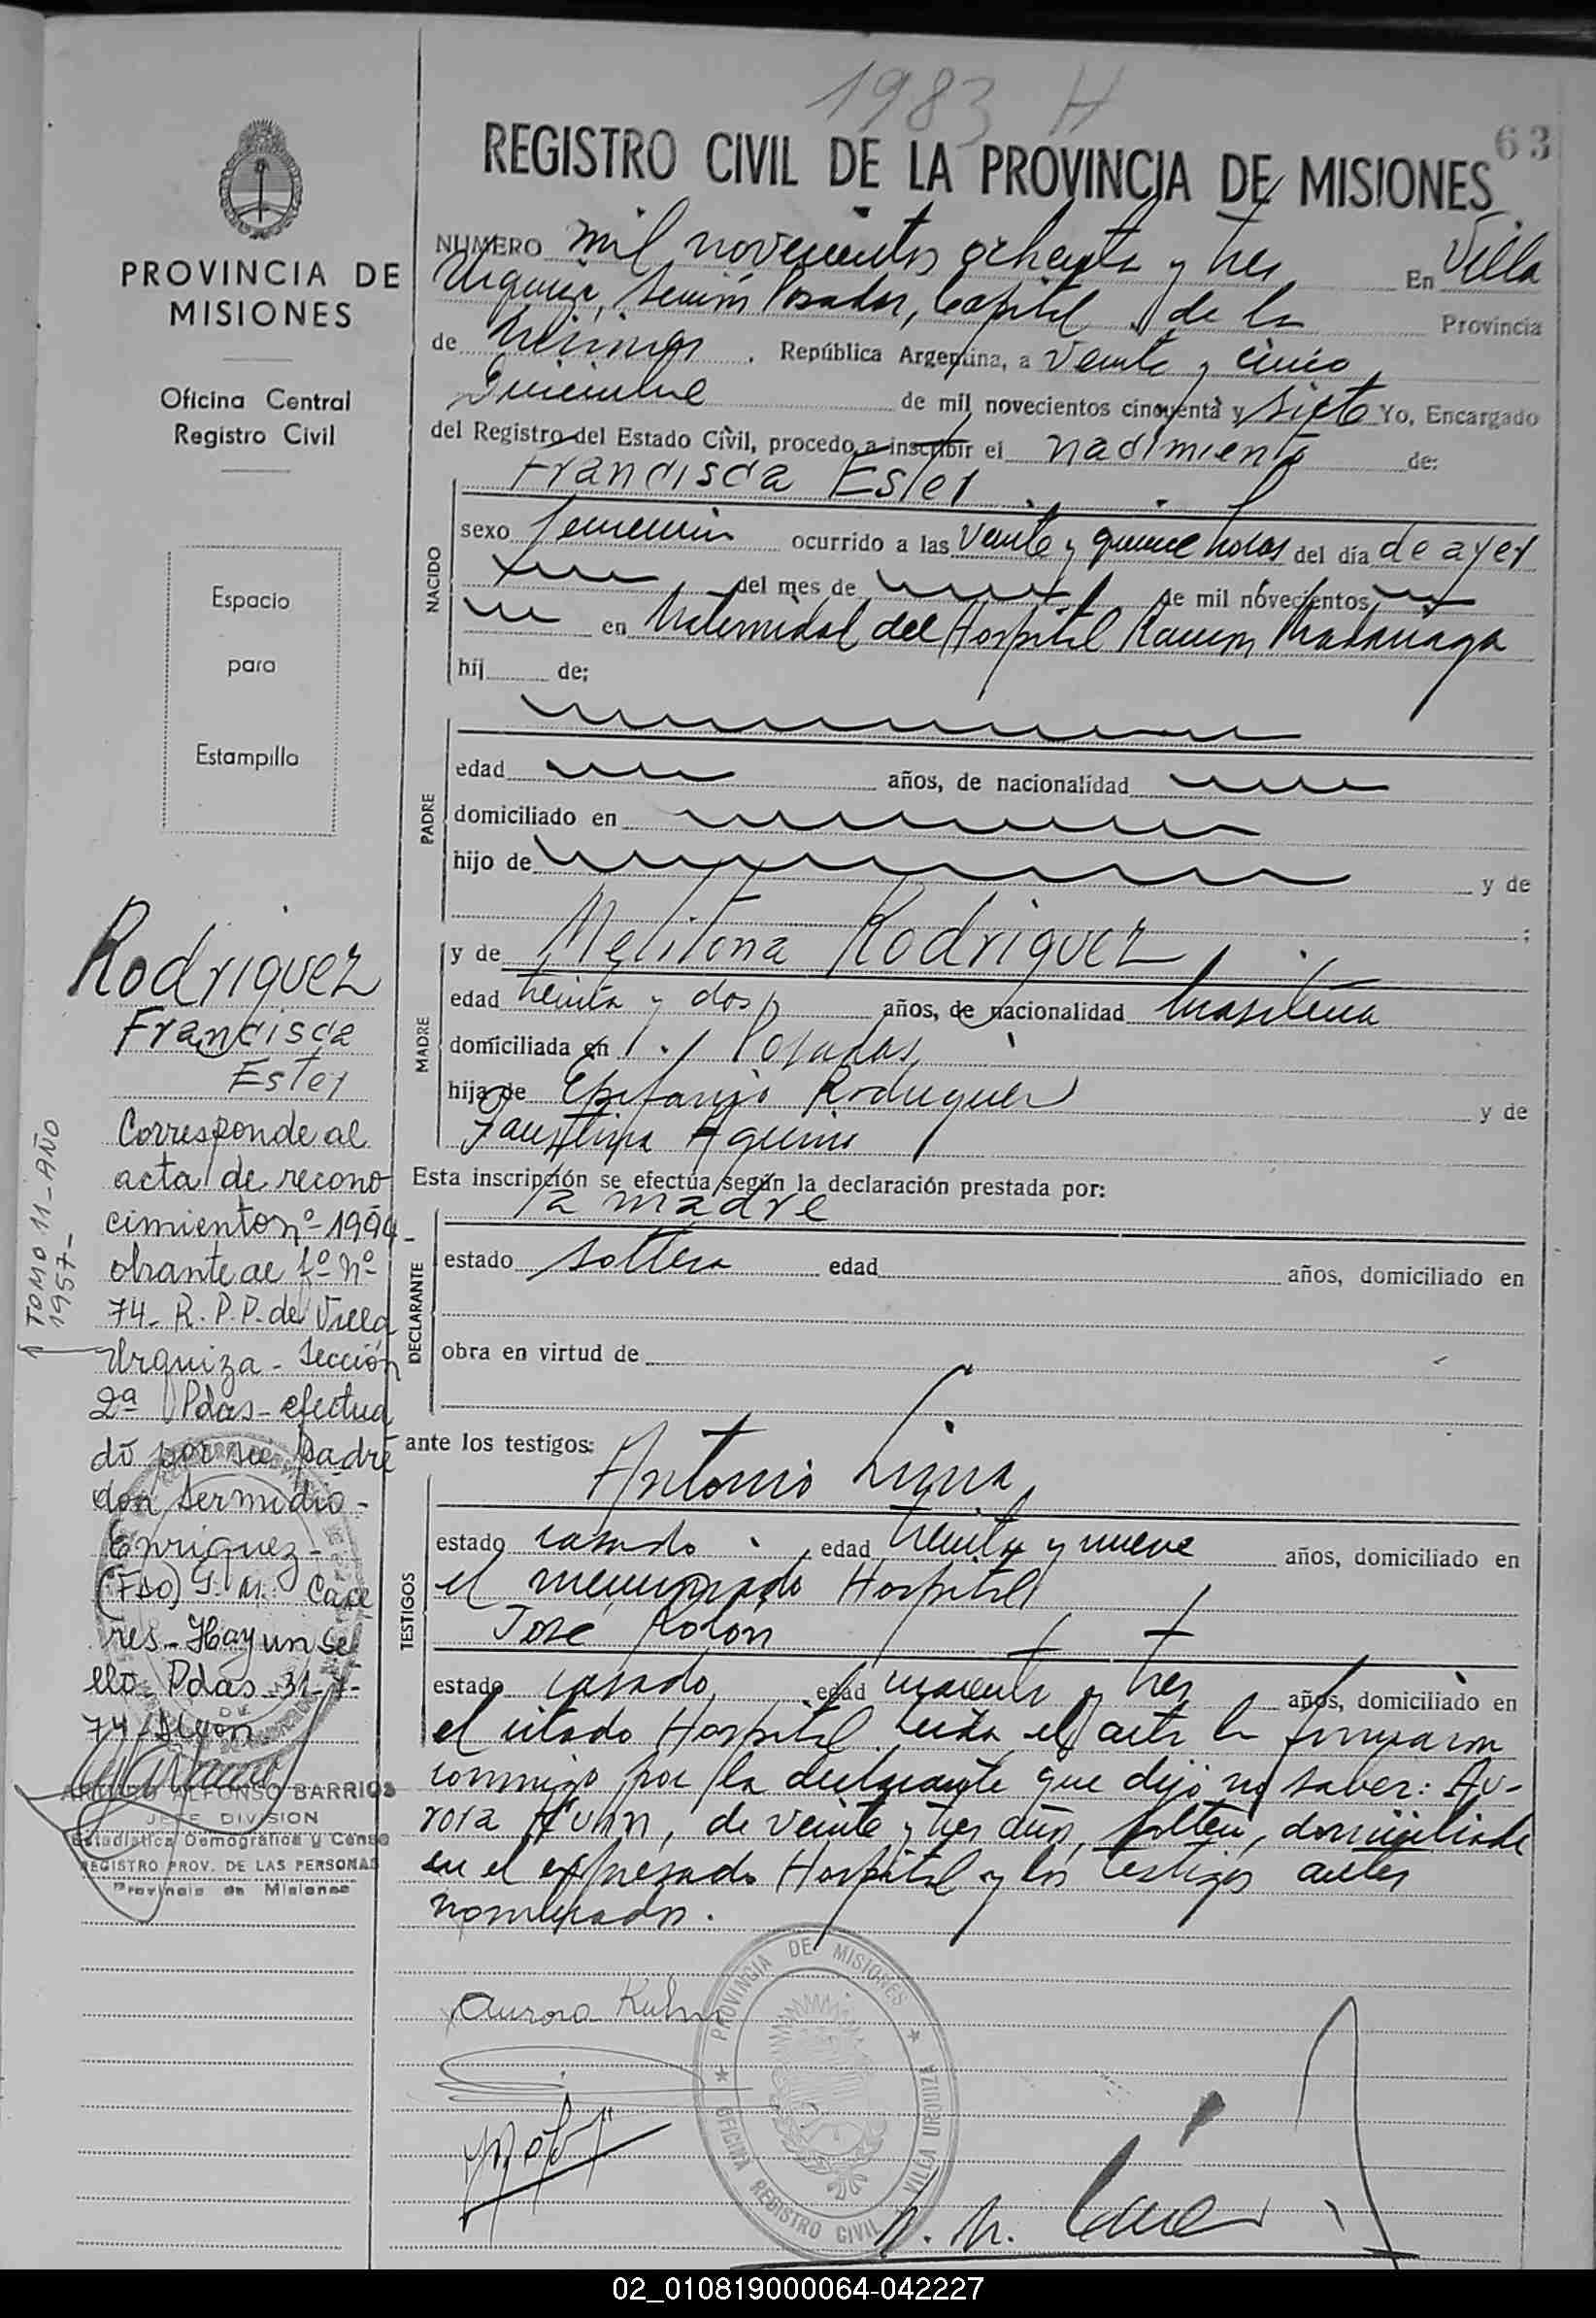 1983 H
63
REGISTRO CIVIL DE LA PROVINCIA DE MISIONES
PROVINCIA DE
MISIONES
Oficina Central
Registro Civil
Espacio
para
Estampilla
NUMERO mil novecientos ochenta y tres En Villa
Urquiza, Sección Posadas, Capital de la Provincia
de Misiones . República Argentina, a veinte y cinco
Diciembre de mil novecientos cincuenta y siete Yo, Encargado
del Registro del Estado Civil, procedo a inscribir el nacimiento de:
Francisca Ester
NACIDO
sexo femenino ocurrido a las veinte y quince horas del día de ayer
del mes de de mil novecientos
en Maternidad del Hospital Ramón Madariaga
hij de:
PADRE
edad años, de nacionalidad
domiciliado en
hijo de y de
;
MADRE
y de Melitona Rodriguez
edad treinta y dos años, de nacionalidad brasileña
domiciliada en Posadas
hija de Epifanio Rodriguez y de
Faustina Aquino
Esta inscripción se efectúa según la declaración prestada por:
la madre
DECLARANTE
estado soltera edad años, domiciliado en
obra en virtud de
ante los testigos:
TESTIGOS
Antonio Lima
estado casado edad treinta y nueve años, domiciliado en
el mencionado Hospital
José Rolón
estado casado, edad cuarenta y tres años, domiciliado en
el citado Hospital. Leída el acta la firmaron
conmigo por la declarante que dijo no saber: Au-
rora Kuhn, de veinte y tres años, soltera, domiciliada
en el expresado Hospital y los testigos antes
nombrados.
Aurora Kuhn
PROVINCIA DE MISIONES
OFICINA REGISTRO CIVIL VILLA URQUIZA
Rodriguez
Francisca
Ester
Corresponde al
acta de recono
cimiento nº 1994
obrante al fº nº
74- R.P.P. de Villa
Urquiza - Sección
2ª Pdas - efectua
do por su padre
don Sermidio -
Enriquez -
(FDO) G. M. Cace
res - Hay un se
llo - Pdas - 31-7-
74
TOMO 11 - AÑO
1957 -
ARTURO ALFONSO BARRIOS
JEFE DIVISION
Estadística Demográfica y Censo
REGISTRO PROV. DE LAS PERSONAS
Provincia de Misiones
02_010819000064-042227